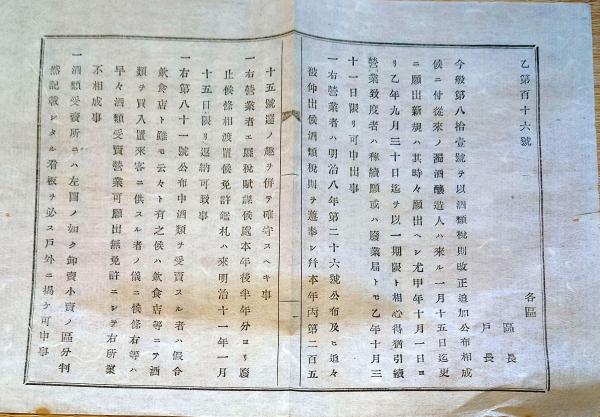 乙第百十六號
各區
區長
戶長
今般第八拾壹號ヲ以酒類稅則改正追加公布相成
候ニ付從來ノ濁酒釀造人ハ來ル一月十五日迄更
ニ願出新規ハ其時々願出ヘシ尤甲年十月一日ヨ
リ乙年九月三十日迄ヲ以一期限ト相心得猶引續
營業致度者ハ稼續願或ハ廢業屆トモ乙年十月三
十一日限リ可申出事
一右營業者ハ明治八年第二十六號公布及ヒ追々
被仰出候酒類稅則ヲ遵奉シ幷本年丙第二百五
十五號達ノ趣ヲ併テ確守スヘキ事
一右營業者ヱ縣稅賦課候處本年後半年分ヨリ廢
止候條相渡置候免許鑑札ハ來明治十一年一月
十五日限リ返納可致事
一右第八十一號公布中酒類ヲ受賣スル者ハ假令
飮食店ト雖モ云々ト有之候ハ飮食店等ニテ酒
類ヲ買入置來客ニ供スル者ノ儀ニ候條右等ハ
早々酒類受賣營業可願出無免許ニシテ右所業
不相成事
一酒類受賣所ニハ左圖ノ如ク卸賣小賣ノ區分判
然記載シタル看板ヲ必ス戶外ニ揭ケ可申事